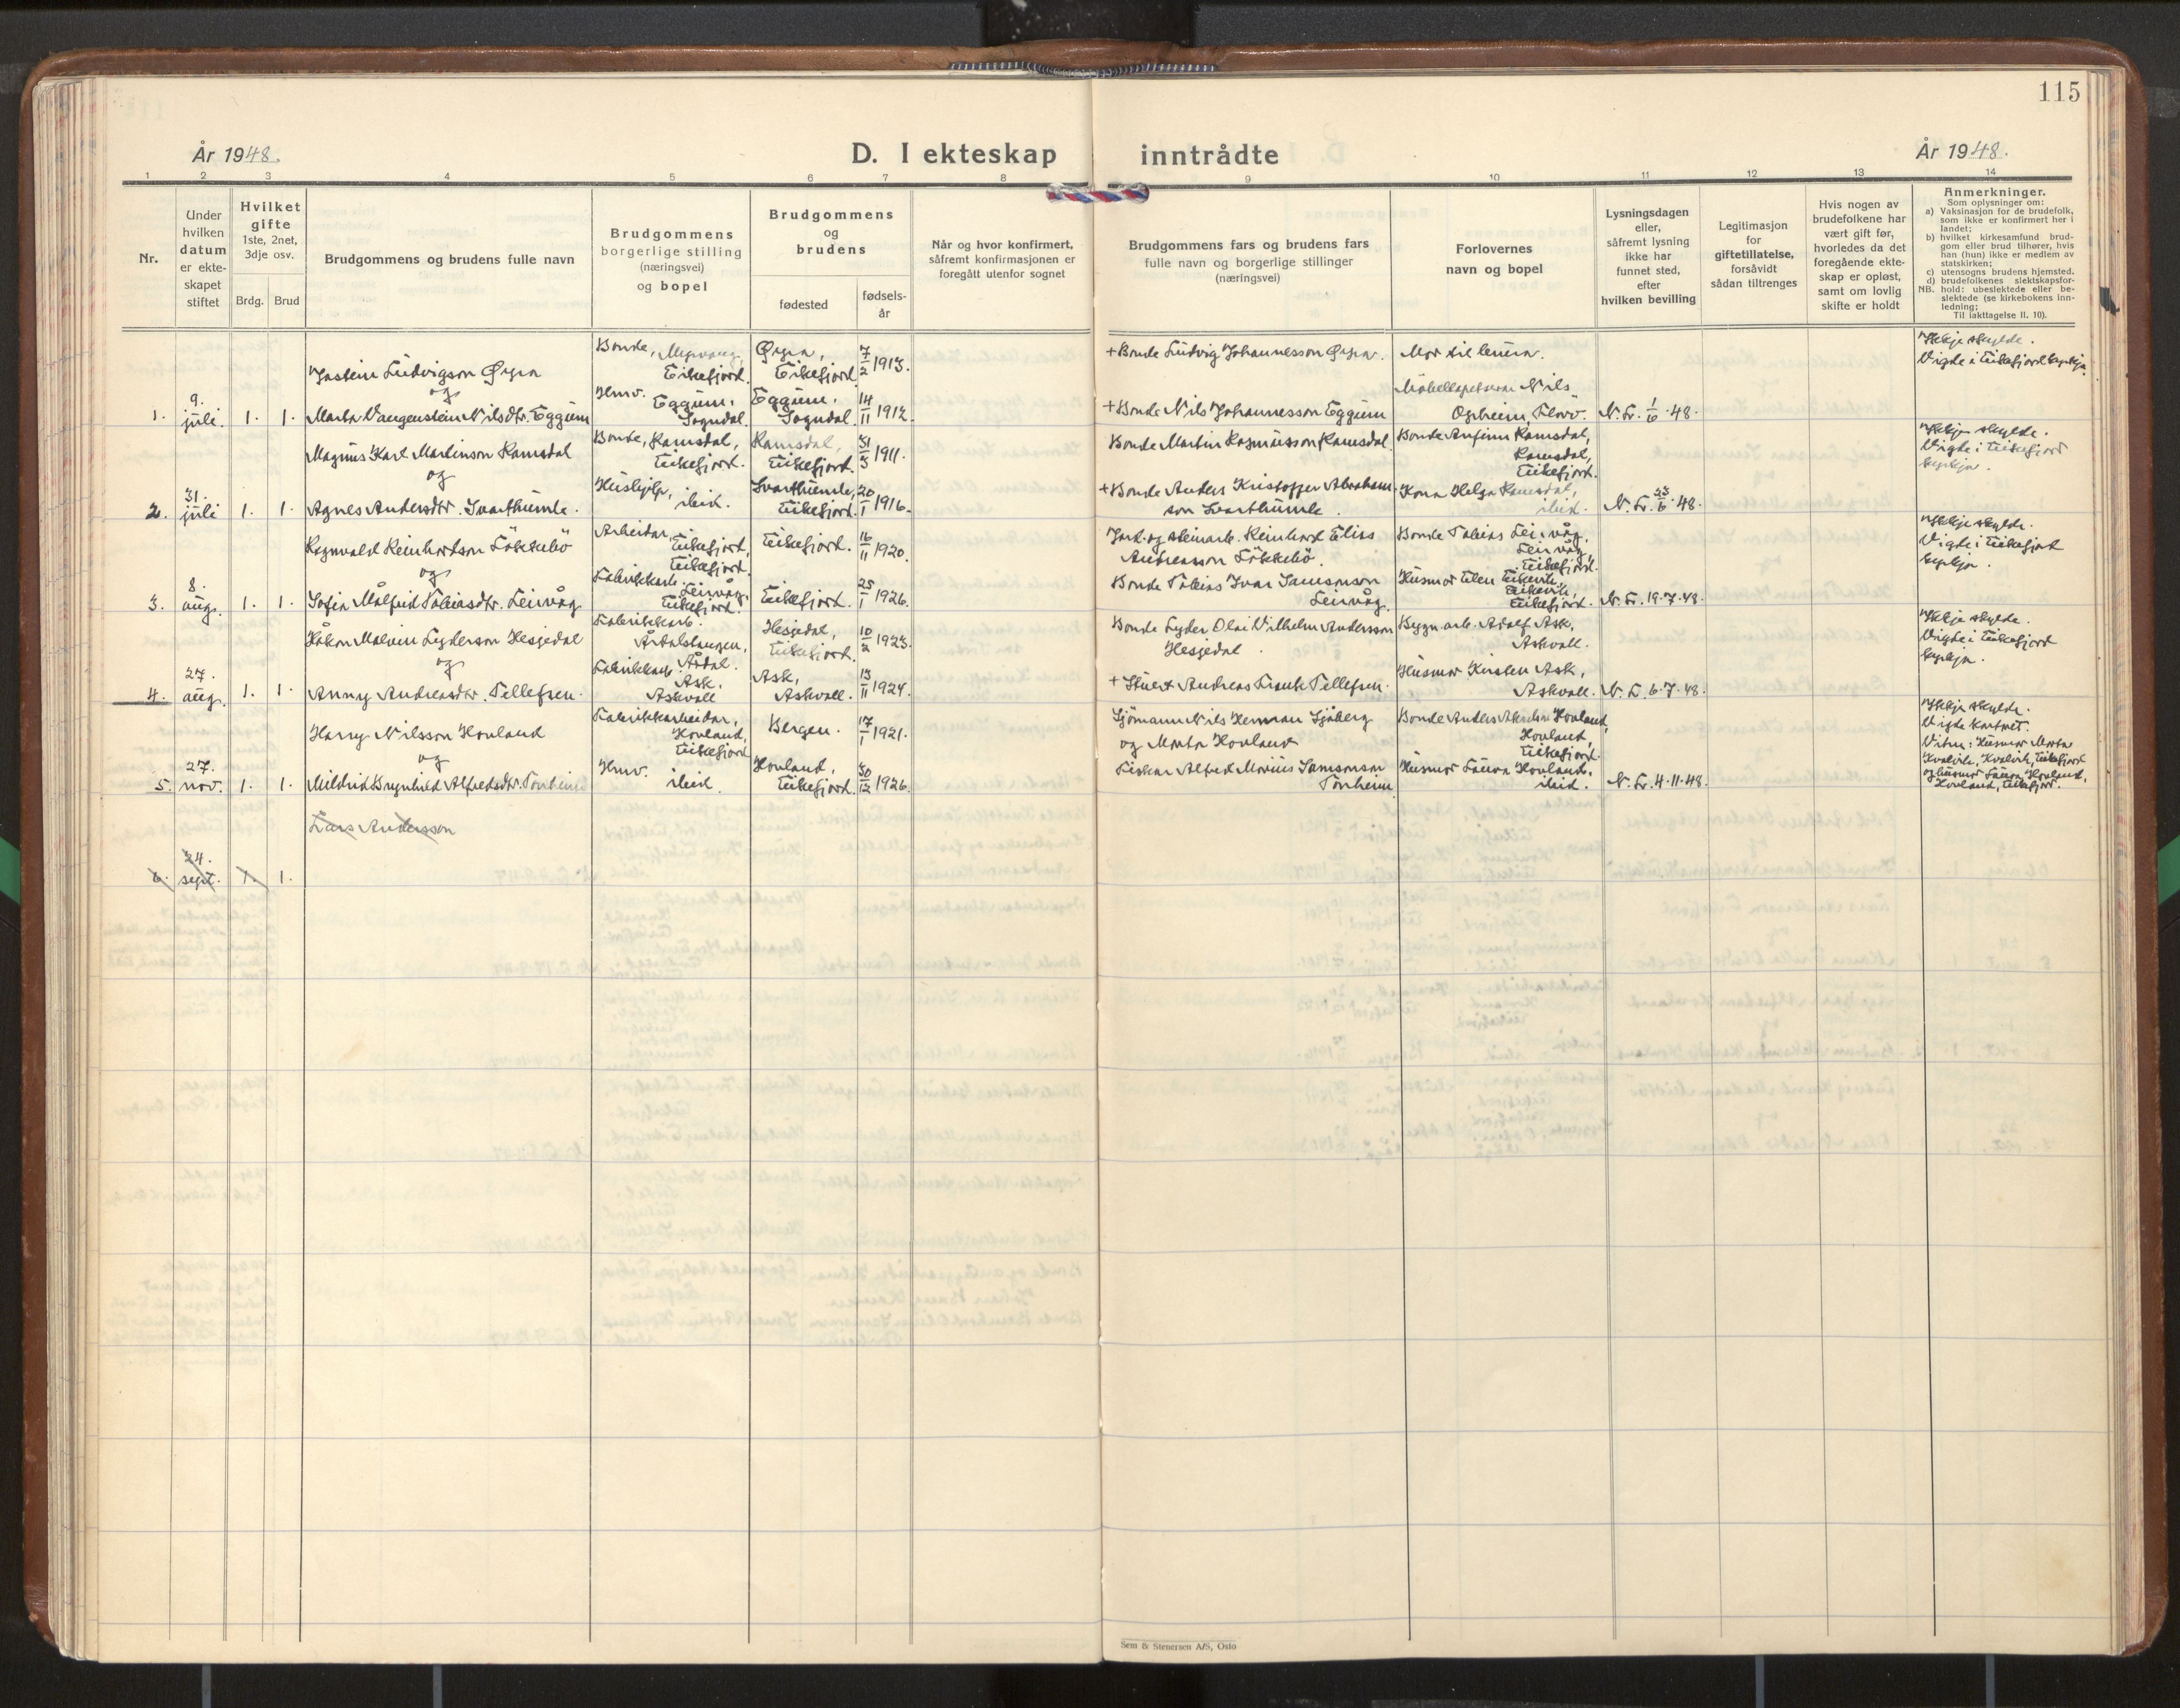 115
År 1948.
D. I ekteskap inntrådte
År 1948.
1 2 3 4 5 6 7 8 9 10 11 12 13 14
Nr.
Under
hvilken
datum
er ekte-
skapet
stiftet
Hvilket
gifte
1ste, 2net,
3dje osv.
Brdg. Brud
Brudgommens og brudens fulle navn
Brudgommens
borgerlige stilling
(næringsvei)
og bopel
Brudgommens
og
brudens
fødested
fødsels-
år
Når og hvor konfirmert,
såfremt konfirmasjonen er
foregått utenfor sognet
Brudgommens fars og brudens fars
fulle navn og borgerlige stillinger
(næringsvei)
Forlovernes
navn og bopel
Lysningsdagen
eller,
såfremt lysning
ikke har
funnet sted,
efter
hvilken bevilling
Legitimasjon
for
giftetillatelse,
forsåvidt
sådan tiltrenges
Hvis nogen av
brudefolkene har
vært gift før,
hvorledes da det
foregående ekte-
skap er opløst,
samt om lovlig
skifte er holdt
Anmerkninger.
Som oplysninger om:
a) Vaksinasjon for de brudefolk,
som ikke er konfirmert her i
landet;
b) hvilket kirkesamfund brud-
gom eller brud tilhører, hvis
han (hun) ikke er medlem av
statskirken;
c) utensogns brudens hjemsted.
d) brudefolkenes slektskapsfor-
NB. hold: ubeslektede eller be-
slektede (se kirkebokens inn-
ledning;
Til iakttagelse II. 10).
1. 9.
juli. 1. 1.
Jostein Ludvigson Øyra
og
Marta Vangenstein Nilsdtr. Eggum
Bonde,
Eikefjord.
Hmv.
Eggum,
Sogndal.
Øyra,
Eikefjord.
7/2 1913.
Eggum,
Sogndal.
14/11 1912.
+ Bonde Ludvig Johannesson Øyra.
+ Bonde Nils Johannesson Eggum
Mor til
Nils
Opheim, Florø.
N. Fr. 1/6 48.
Ikkje skylde.
Vigde i Eikefjord kyrkje.
2. 31.
juli 1. 1.
Magnus Karl Martinson Ramsdal
og
Agnes Andersdtr. Svarthumle.
Bonde, Ramsdal,
Eikefjord.
Hushjelp,
ibid.
Ramsdal,
Eikefjord.
31/3 1911.
Svarthumle,
Eikefjord.
20/1 1916.
Bonde Martin Rasmusson Ramsdal
+ Bonde Anders Kristoffer Abraham-
son Svarthumle.
Bonde Anfinn Ramsdal,
Ramsdal,
Eikefjord.
Kona Helga Ramsdal,
ibid.
N. Fr. 23/6 48.
Ikkje skylde.
Vigde i Eikefjord
kyrkje.
3. 8.
aug. 1. 1.
Ragnvald Reinhardson Løkkebø
og
Sofia Målfrid Tobiasdtr. Leirvåg
Arbeidar,
Eikefjord,
Eikefjord.
Fabrikkarb.
Leirvåg,
Eikefjord.
Eikefjord.
16/11 1920.
Eikefjord.
25/1 1926.
Jord- og steinarb. Reinhard Elias
Andreasson Løkkebø.
Bonde Tobias Ivar Samsonson
Leirvåg.
Bonde Tobias Leirvåg,
Leirvåg,
Eikefjord.
Husmor Elen Eikevik,
Eikevik,
Eikefjord.
N. Fr. 19.7.48.
Ikkje skylde.
Vigde i Eikefjord
kyrkje.
4. 27.
aug. 1. 1.
Håkon Malvin Lyderson Hesjedal
og
Anny Andreasdtr. Tellefsen.
Fabrikkarb.
Årdalstangen,
Årdal.
Fabrikkarb.
Ask,
Askvoll
Hesjedal,
Eikefjord.
10/2 1923.
Ask,
Askvoll.
13/11 1924.
Bonde Lyder Olai Vilhelm Andersson
Hesjedal.
+ Stuert Andreas Frank Tellefsen.
Bygn. arb. Adolf Ask,
Askvoll.
Husmor Kirsten Ask,
Askvoll.
N. F. 6.7.48.
Ikkje skylde.
Vigde i Eikefjord
kyrkje.
5. 27.
nov. 1. 1.
Harry Nilsson Hovland
og
Mildrid Brynhild Alfredsdtr. Tonheim
Fabrikkarbeidar,
Hovland,
Eikefjord
Hmv.
ibid.
Bergen.
17/1 1921.
Hovland,
Eikefjord.
30/12 1926.
Sjömann Nils Herman Sjöberg
og Marta Hovland
Fiskar Alfred Marius Samsonson
Tonheim
Bonde Anders Hovland,
Hovland,
Eikefjord.
Husmor Laura Hovland,
ibid.
N. Fr. 4.11.48.
Ikkje skylde.
Vigde kontret.
Vitne: Husmor Marta
Kvalvik, Kvalvik, Eikefjord
og husmor Laura Hovland,
Hovland, Eikefjord.
6. 24.
sept. 1. 1.
Lars Andersson
Sem & Stenersen A/S, Oslo